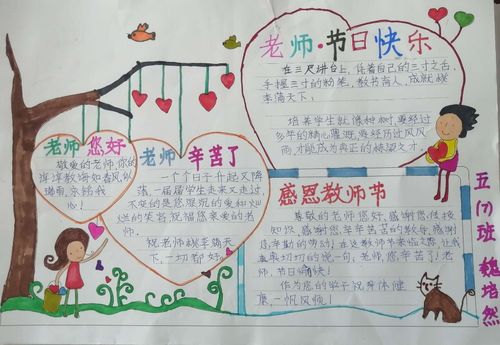 老师·节日快乐
在三尺讲台上，凭着自己的三寸之舌，
手握三寸的粉笔，教书育人，成就桃
李满天下。
培养学生就像树树，要经过
多年的精心灌溉，要经历过风风
雨，才能成为真正的栋梁之才。
老师 您好
敬爱的老师，你的
谆谆教诲如春风，似
瑞雨，永铭我
心！
老师 辛苦了
一个个日子升起又降
落，一届届学生走来又走过，
不变的是您深沉的爱和灿
烂的笑容，祝福您亲爱的老
师。
祝老师桃李满天
下，一切都好
感恩教师节
尊敬的老师您好，感谢您传授
知识，感谢您年辛苦苦的教乐，感谢
您辛勤的劳动，在这教师节来临之际，让我
真切切的说一句，老师，您辛苦了！老
师，节日愉快！
作为您的学子祝身体健
康，一帆风顺！
五(7)班 魏培然